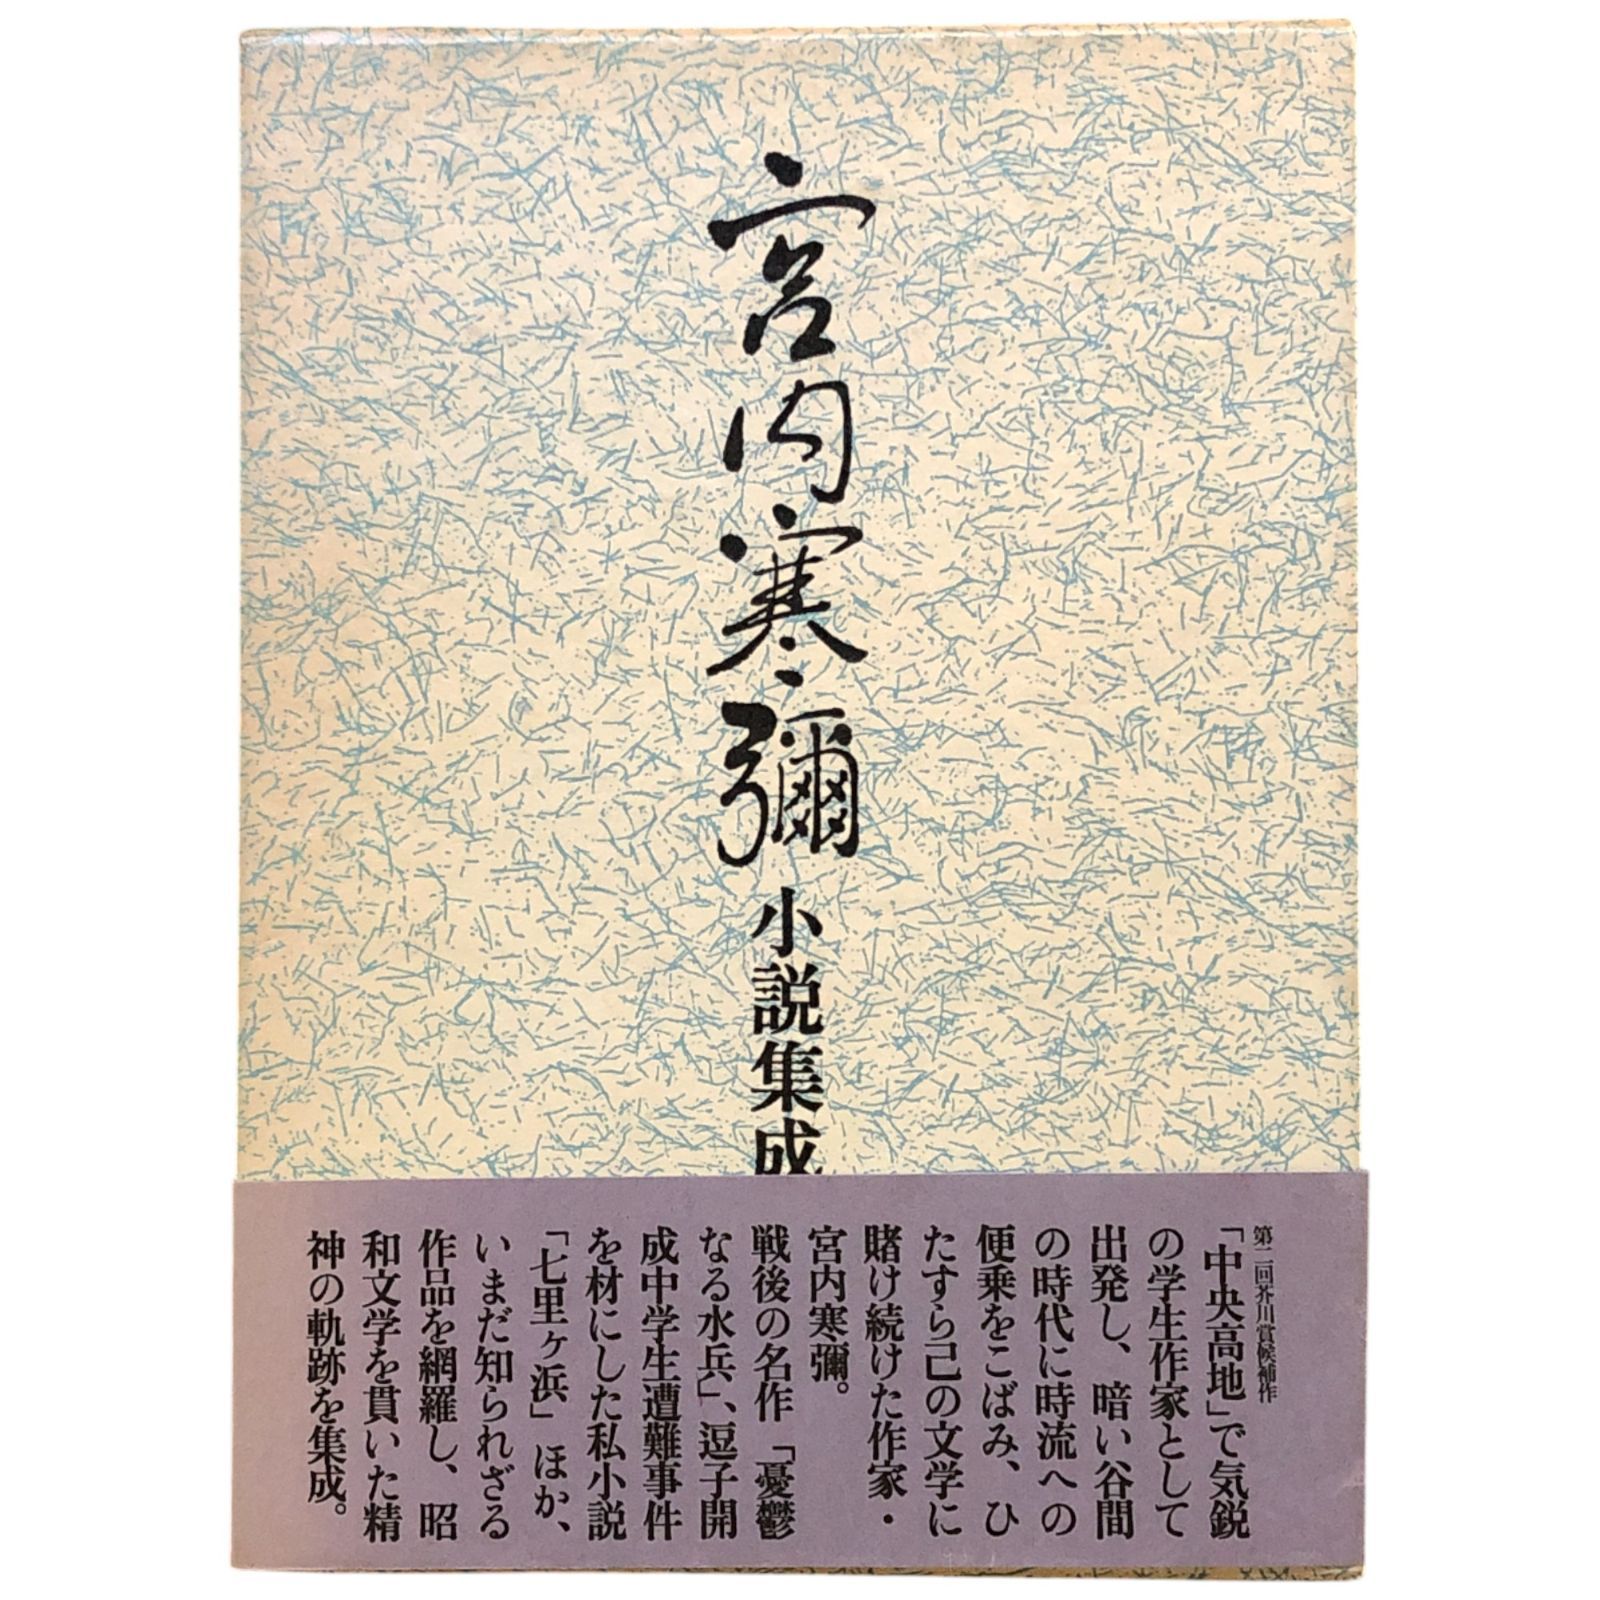 宮内寒彌
小説集成
第二回芥川賞候補作
「中央高地」で気鋭
の学生作家として
出発し、暗い谷間
の時代に時流への
便乗をこばみ、ひ
たすら己の文学に
賭け続けた作家・
宮内寒彌。
戦後の名作「憂鬱
なる水兵」、逗子開
成中学生遭難事件
を材にした私小説
「七里ヶ浜」ほか、
いまだ知られざる
作品を網羅し、昭
和文学を貫いた精
神の軌跡を集成。